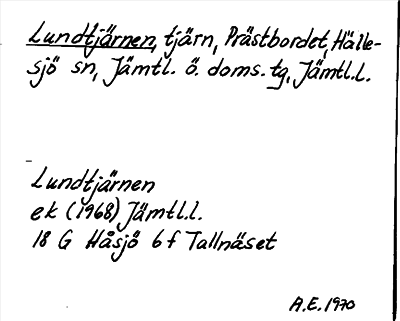 Lundtjärnen, tjärn, Prästbordet, Hälle-
sjö sn, Jämtl. ö. doms. tg, Jämtl.l.
Lundtjärnen
ek (1968) Jämtl.l.
18 G Håsjö 6 f Tallnäset
A.E. 1970